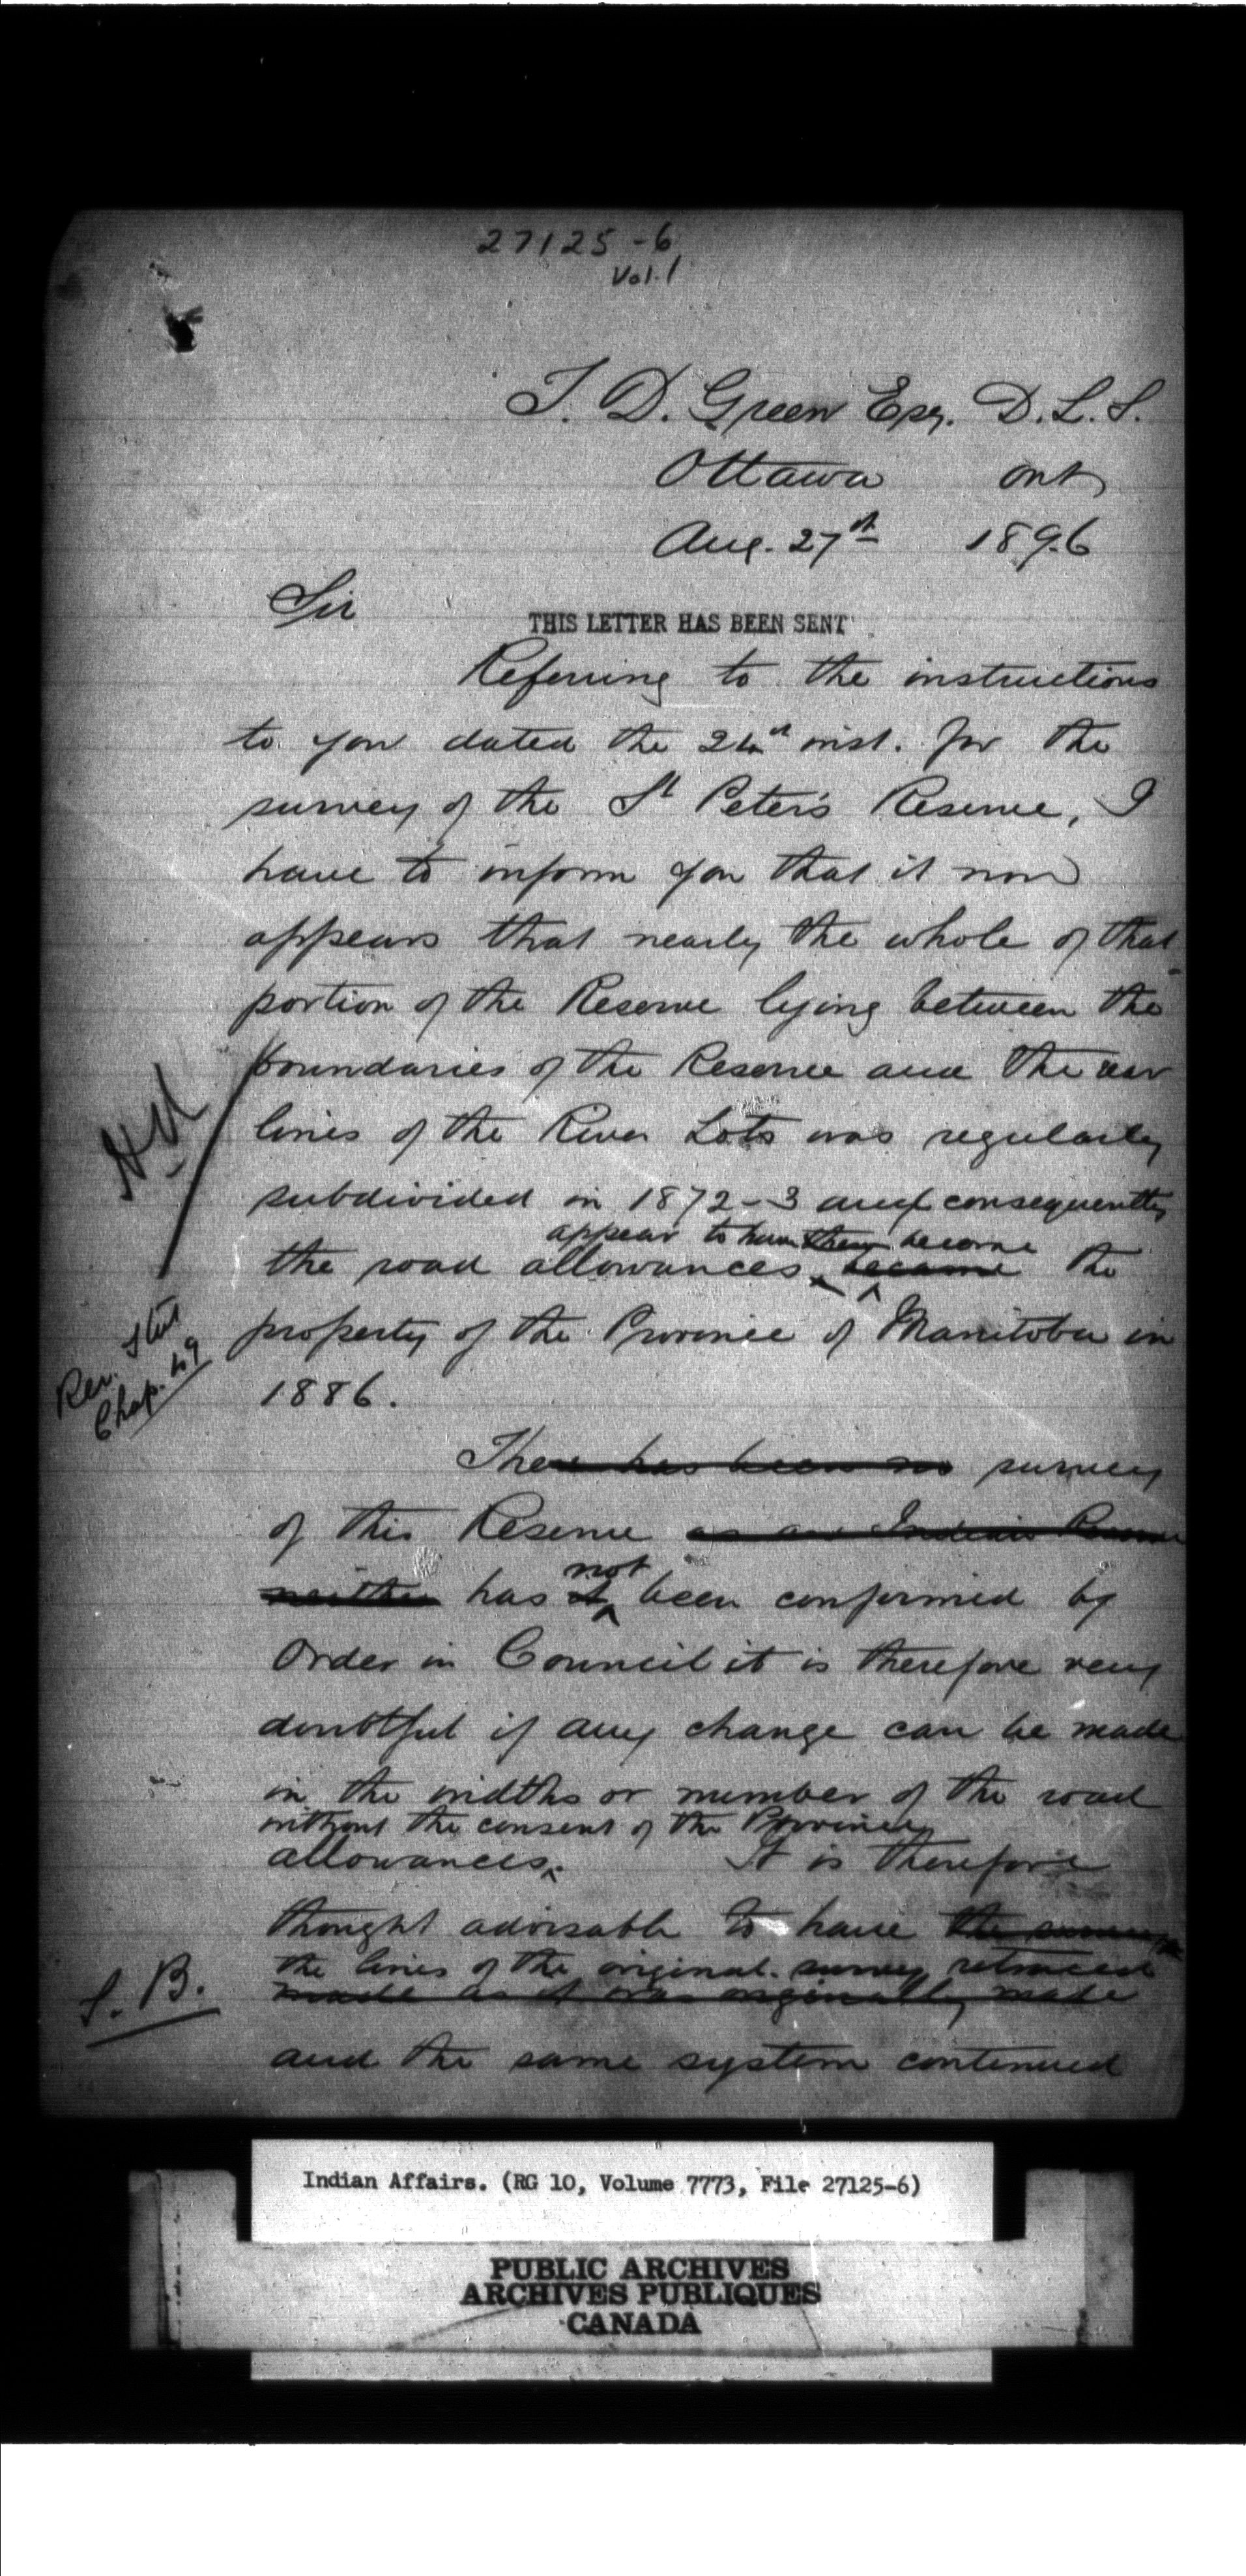 27125-6
Vol. 1
T. D. Green Esq. D.L.S.
Ottawa Ont
Aug. 27th 1896
Sir
THIS LETTER HAS BEEN SENT
Referring to the instructions
to you dated the 24th inst. for the
survey of the St Peter's Reserve, I
have to inform you that it now
appears that nearly the whole of that
portion of the Reserve lying between the
boundaries of the Reserve and the rear
lines of the River Lots was regularly
subdivided in 1872-3 and consequently
appear to have then become
the road allowances became the
property of the Province of Manitoba in
1886.
Rev. Stat
Chap. 49
There has been no survey
of this Reserve as an Indian Reserve
not
neither has it been confirmed by
Order in Council it is therefore very
doubtful if any change can be made
in the widths or number of the road
without the consent of the Province
allowances. It is therefore
thought advisable to have the survey
the lines of the original survey retraced
S.B.
made as it was originally made
and the same system continued
Indian Affairs. (RG 10, Volume 7773, File 27125-6)
PUBLIC ARCHIVES
ARCHIVES PUBLIQUES
CANADA